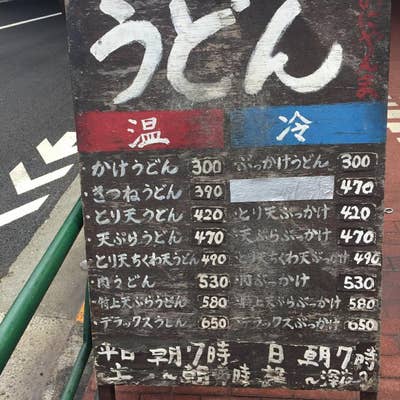 うどん
温
かけうどん 300
・きつねうどん 390
・とり天うどん 420
・天ぷらうどん 470
・とり天ちくわ天うどん 490
・肉うどん 530
・特上天ぷらうどん 580
・デラックスうどん 650
冷
・ぶっかけうどん 300
470
・とり天ぶっかけ 420
・天ぷらぶっかけ 470
・とり天ちくわ天ぶっかけ 490
・肉ぶっかけ 530
・特上天ぷらぶっかけ 580
・デラックスぶっかけ 650
平日 朝7時 日 朝7時
土 〜朝 時 〜深夜